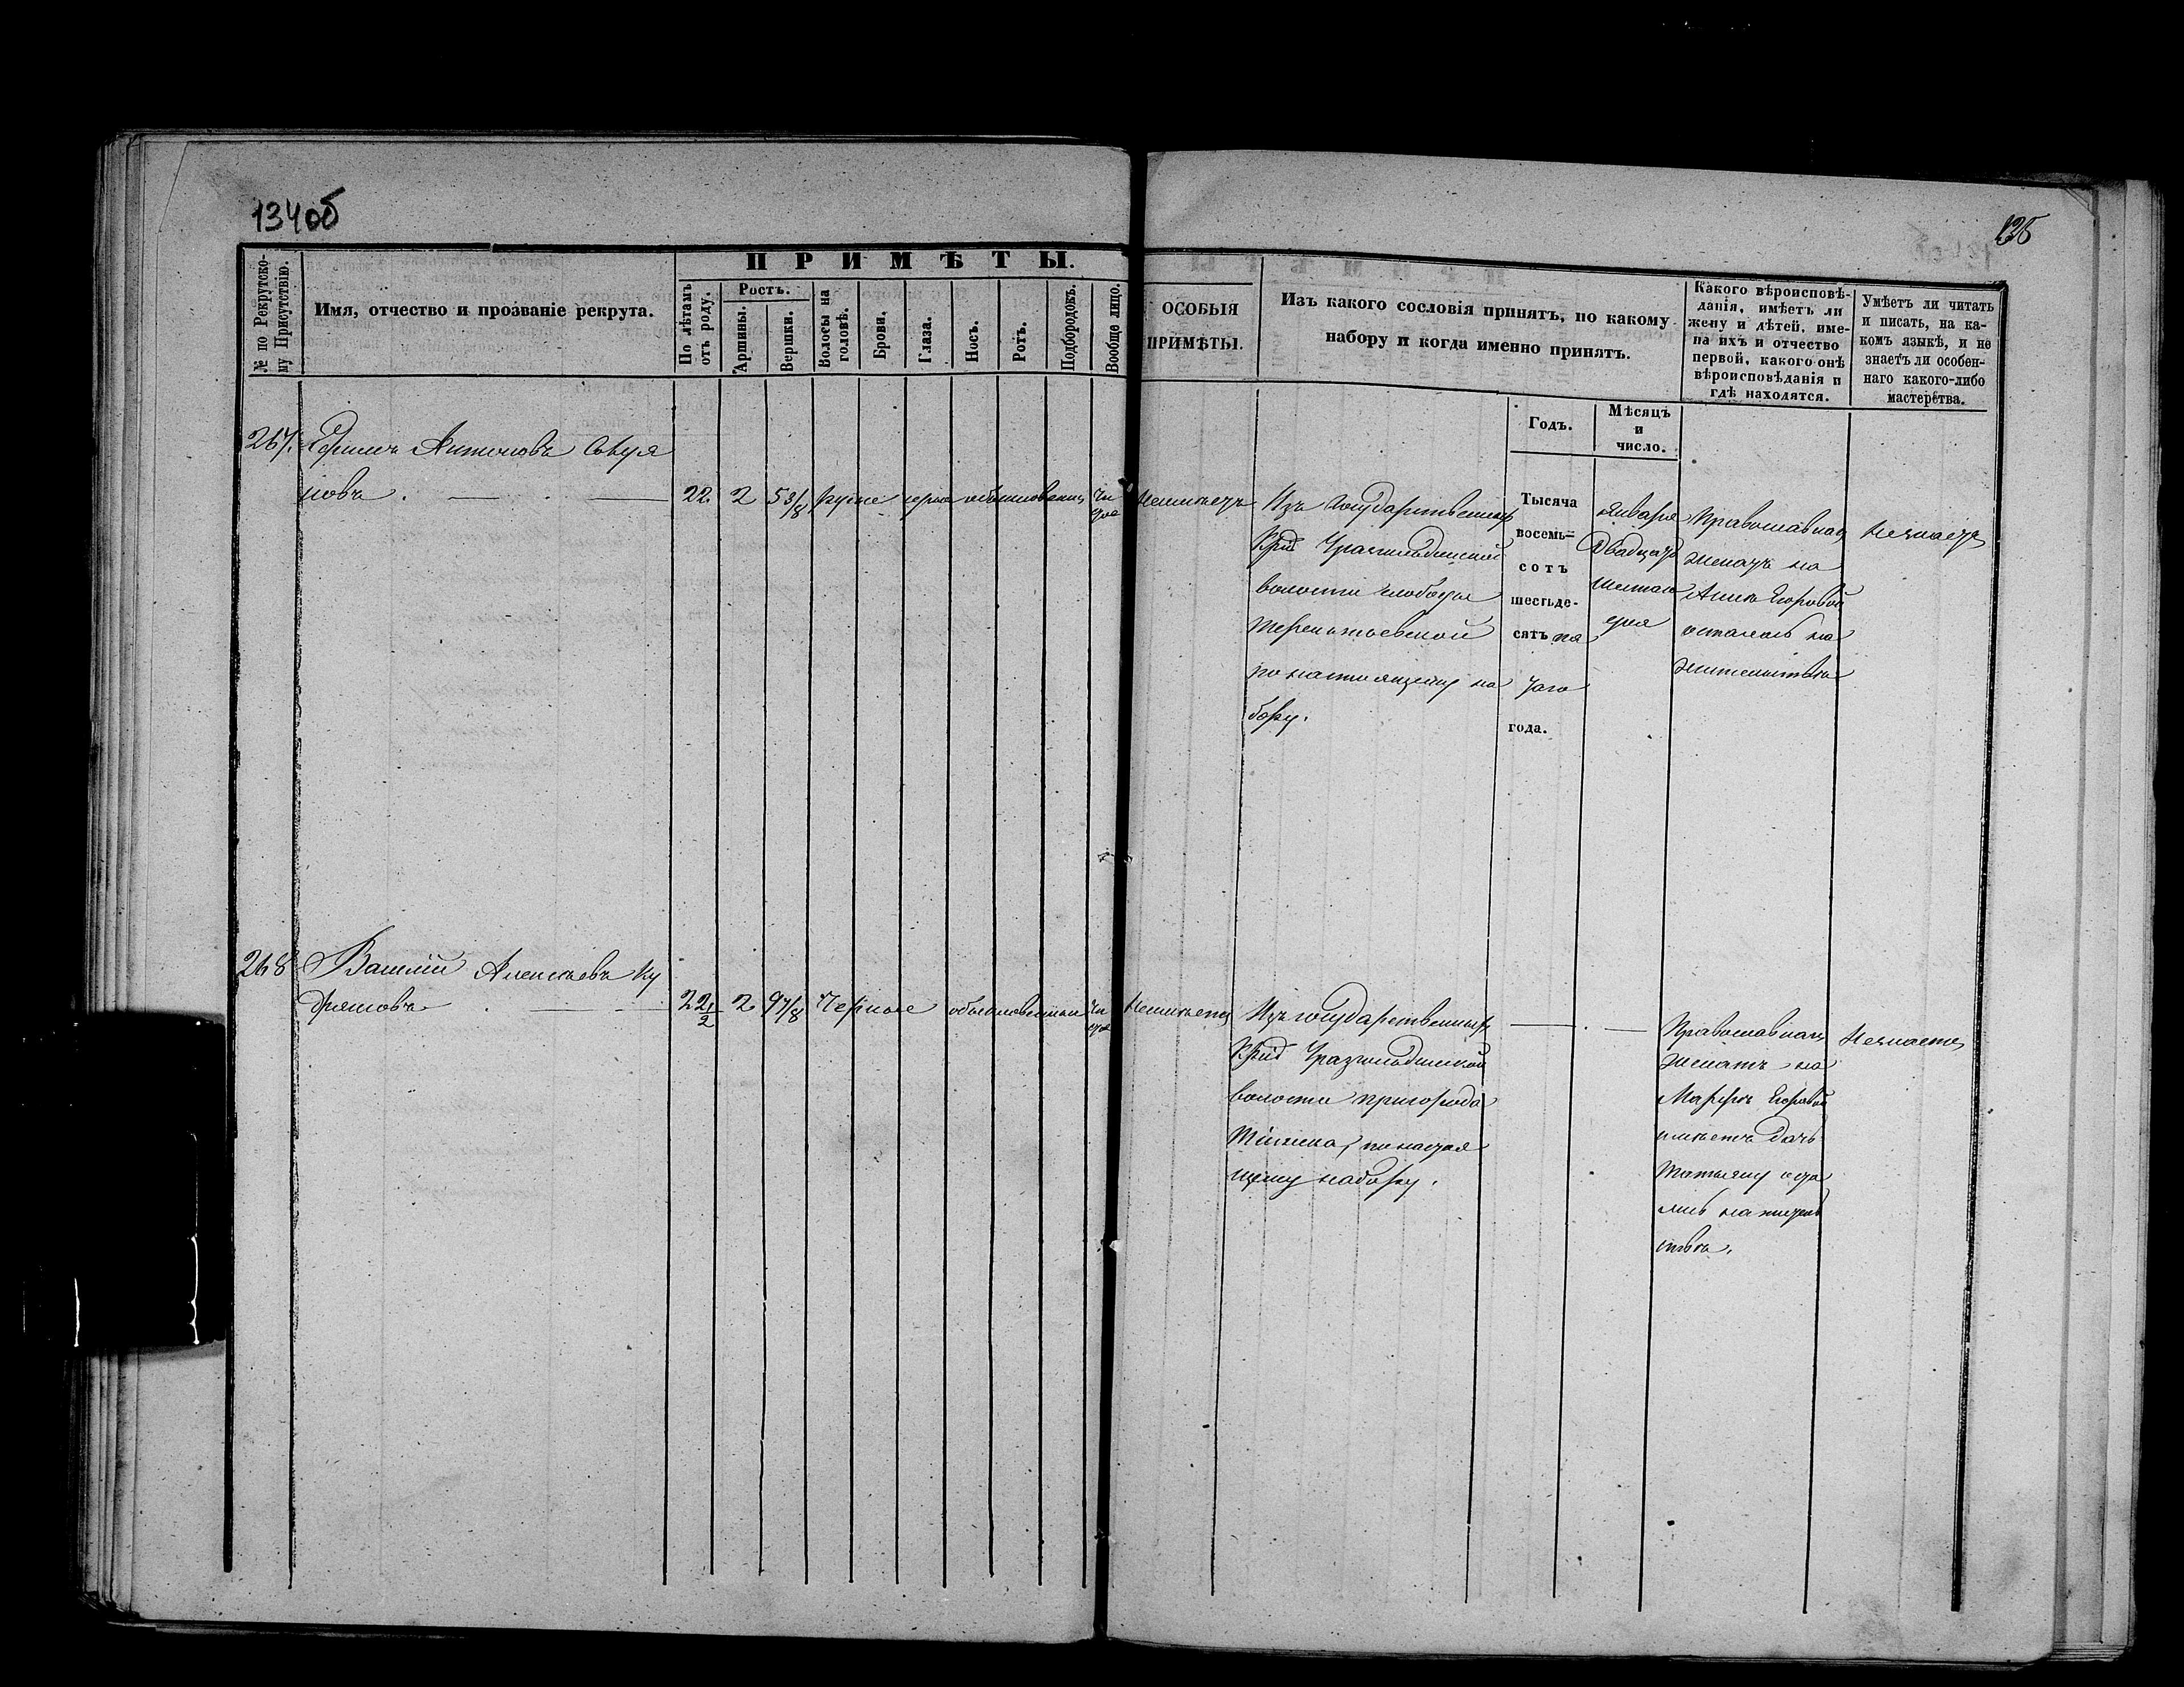 134об
135
№ по Рекрутско-
му Присутствію.
Имя, отчество и прозваніе рекрута.
ПРИМѢТЫ.
По лѣтамъ
отъ роду.
Ростъ.
Аршины.
Вершки.
Волосы на
головѣ.
Брови.
Глаза.
Носъ.
Ротъ.
Подбородокъ.
Вообще лицо.
ОСОБЫЯ
ПРИМѢТЫ.
Изъ какого сословія принятъ, по какому
набору и когда именно принятъ.
Годъ.
Мѣсяцъ
и
число.
Какого вѣроисповѣ-
данія, имѣетъ ли
жену и дѣтей, име-
на ихъ и отчество
первой, какого онѣ
вѣроисповѣданія и
гдѣ находятся.
Умѣетъ ли читать
и писать, на ка-
комъ языкѣ, и не
знаетъ ли особен-
наго какого-либо
мастерства.
267.
Антоновъ
новъ.
22. 2 5 3/8 русые обыкновенны чи
стое
Неимѣетъ
Изъ Государственныхъ
волости слободы
Терентьевской
по настоящему на
бору.
Тысяча
восемь=
сотъ
шестьде-
сятъ пя
таго
года.
Января
Двадцать
шестаго
дня
Православнаго
женатъ на
Аннѣ Егоровой
осталась на
жительствѣ
Незнаетъ
268
Василій Алексѣевъ Ку
дряшовъ
22 1/2 2 9 7/8 Черные обыкновенныи чи
стое
Неимѣетъ
Изъ государственныхъ
волости пригорода
Тіинска, по настоя
щему набору.
Православнаго
женатъ на
Марѳѣ Егоровой
имѣетъ дочь
Татьяну оста
лись на житель
ствѣ.
Незнаетъ